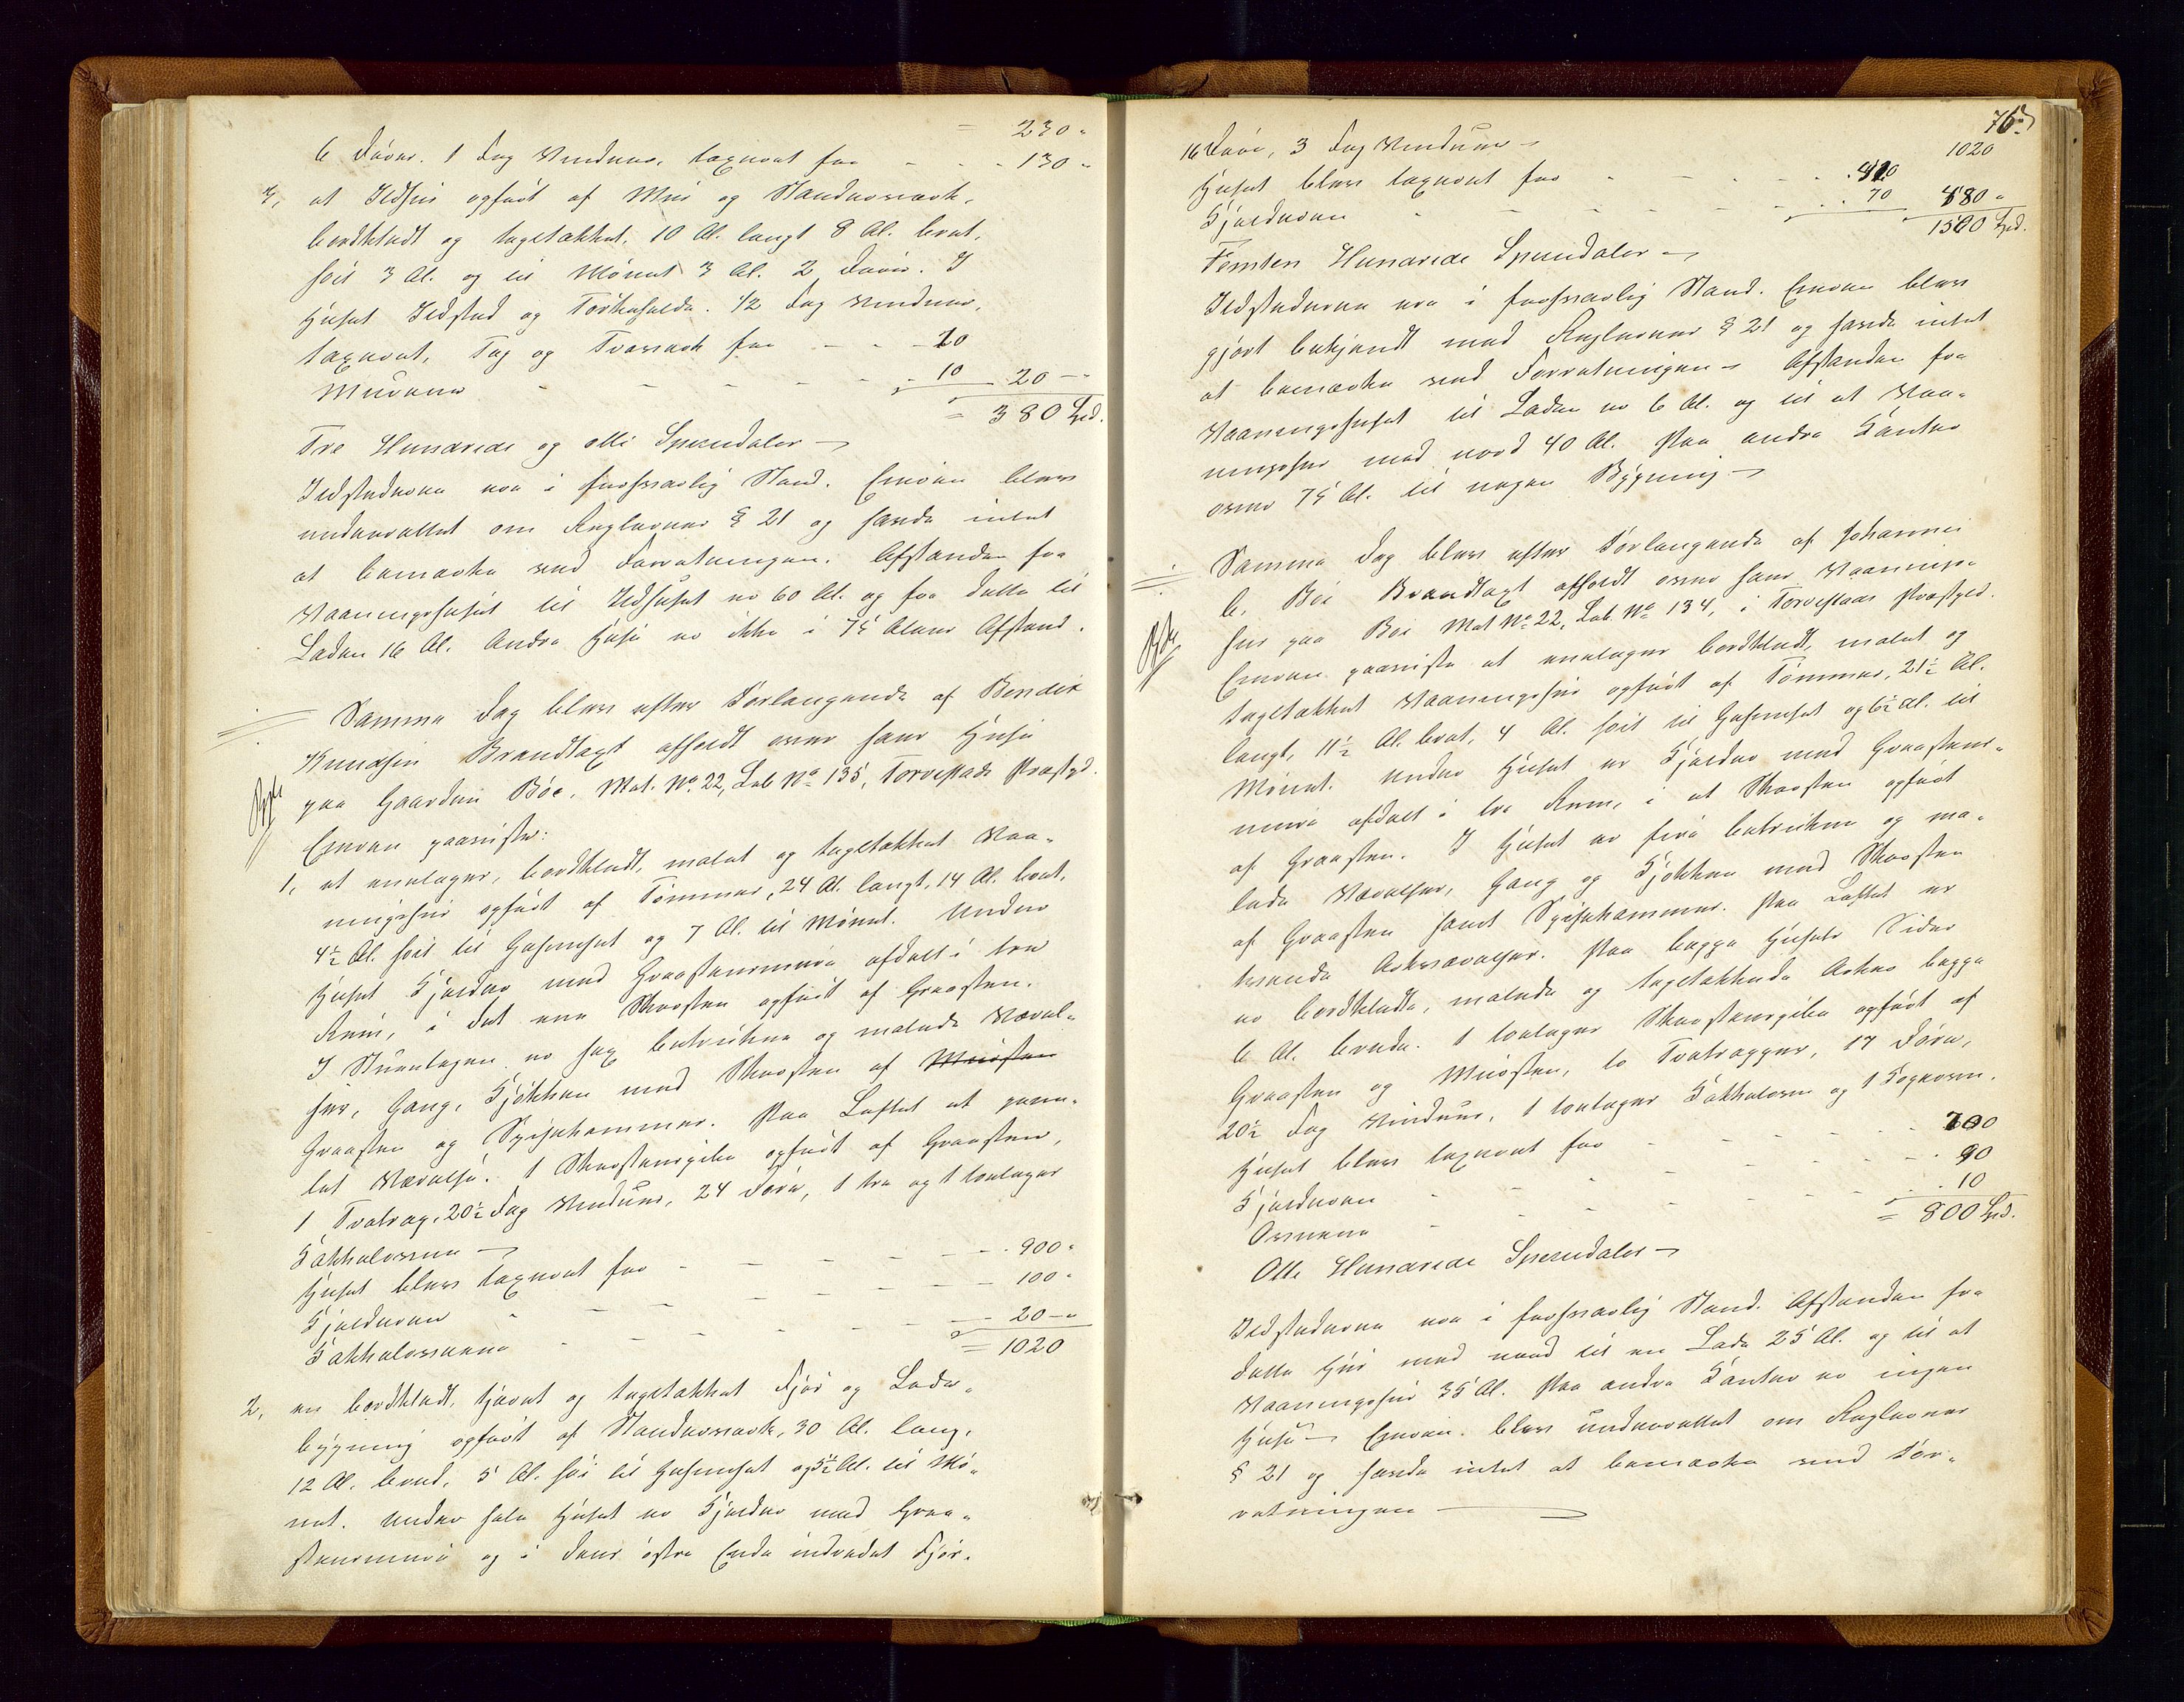 = 230 "
6 Dören. 1 Fag Vinduer, taxeret for - - - 130 "
3, et Ildhus opført af Mur og Standerværk,
bordklædt og tagetækket, 10 Al. langt 8 Al. bret,
høit 3 Al. og til Mønet 3 Al. 2 Døre. I
Huset Ildsted og Tørkehelde. 1/2 Fag Vinduer,
taxeret, Tag og Træværk for - - - 10
Murene - - - - - 10 20 -"
= 380 Spd.
Tre Hundrede og otti Speciedaler
Ildstederne ere i forsvarlig Stand. Eieren blev
underrettet om Reglernes § 21 og havde intet
at bemærke ved Forretningen. Afstanden fra
Vaaningshuset til Ildhuset er 60 Al. og fra dette til
Laden 16 Al. Andre Huse er ikke i 75 Alens Afstand.
Samme Dag blev efter Forlangende af Bendik
Knudsen Brandtaxt afholdt over hans Huse
paa Gaarden Böe, Mat. No 22, Løb No 135, Torvestads Præstgd.
Eieren paaviste:
1, et enetages, bordklædt, malet og tagetækket Vaa-
ningshus opført af Tømmer, 24 Al. langt, 14 Al. bret,
4 1/2 Al. høit til Gesimset og 7 Al. til Mønet. Under
Huset Kjelder med Graastensmure afdelt i tre
Rum, i det ene Skorsten opført af Graasten.
I Stueetagen er sex betrukne og malede Værel-
ser, Gang, Kjøkken med Skorsten af Mursten
Graasten og Spisekammer. Paa Loftet et pane-
let Værelse. 1 Skorstenspibe opført af Graasten,
1 Trætrap. 20 1/2 Fag Vinduer, 24 Døre, 1 tre og 1 toetages
Kakkelovne
Huset blev taxeret for - - - - 900 "
Kjelderen - - - - - 100 "
Kakkelovnene - - - - 20 -"
= 1020
2, en bordklædt, tjæret og tagetækket Fjøs og Lade-
bygning opført af Standerværk, 30 Al. lang,
12 Al. bred, 5 Al. høi til Gesimset og 5 1/2 Al. til Mø-
net. Under hele Huset er Kjelder med Graa-
stensmure og i dens østre Ende indredet Fjøs.
76
16 Døre, 3 Fag Vinduer 1020
Huset blev taxeret for - - - - 410
Kjelderen - - - - - 70 480 "
1500 Spd.
Femten Hundrede Speciedaler
Ildstederne ere i forsvarlig Stand. Eieren blev
gjort bekjendt med Reglernes § 21 og havde intet
at bemærke ved Forretningen. Afstanden fra
Vaaningshuset til Laden er 6 Al. og til et Vaa-
ningshus mod nord 40 Al. Paa andre Kanter
over 75 Al. til nogen Bygning
Samme Dag blev efter Forlangende af Johannes
B. Böe Brandtaxt afholdt over hans Vaanings-
hus paa Böe Mat No 22, Løb. No 134, i Torvestads Præstgd.
Eieren paaviste et enetages bordklædt, malet og
tagetækket Vaaningshus opført af Tømmer, 21 1/2 Al.
langt, 11 1/2 Al. bret, 4 Al. høit til Gesimset og 6 1/2 Al. til
Mønet. Under Huset er Kjelder med Graastens-
mure afdelt i tre Rum, i et Skorsten opført
af Graasten. I Huset er fire betrukne og ma-
lede Værelser, Gang og Kjøkken med Skorsten
af Graasten samt Spisekammer. Paa Loftet er
trende Arkværelser. Paa begge Husets Sider
er bordklædte, malede og tagetækkede Arker begge
6 Al. brede. 1 toetages Skorstenspibe opført af
Graasten og Mursten, to Trætrapper, 17 Døre,
20 1/2 Fag Vinduer, 1 toetages Kakkelovn og 1 Kogeovn.
Huset blev taxeret for - - - - 700
Kjelderen - - - - - 90
Ovnene - - - - - 10
= 800 Spd.
Otte Hundrede Speciedaler
Ildstederne ere i forsvarlig Stand. Afstanden fra
dette Hus mod nord til en Lade 25 Al. og til et
Vaaningshus 35 Al. Paa andre Kanter er ingen
Huse. Eieren blev underrettet om Reglernes
§ 21 og havde intet at bemærke ved For-
retningen